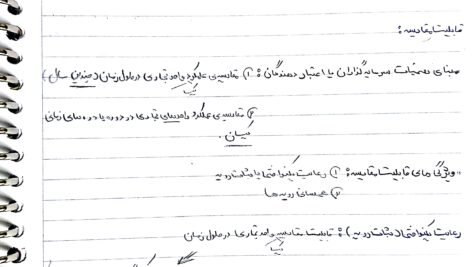 قابلیت مقایسه :
مبنای تصمیمات سرمایه گذاران یا اعتبار دهندگان : ① مقایسه‌ی عملکرد واحد تجاری در طول زمان (چندین سال)
یک
② مقایسه‌ی عملکرد واحدهای تجاری در دوره یا دوره های زمانی
یکسان .
ویژگی های قابلیت مقایسه : ① رعایت یکنواختی یا ثبات رویه
② همسانی رویه ها
رعایت یکنواختی (ثبات رویه) : قابلیت مقایسه واحد تجاری در طول زمان
یک